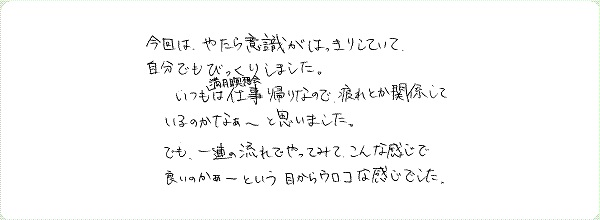 今回は、やたら意識がはっきりしていて、
自分でもびっくりしました。
満月瞑想会
いつもは仕事帰りなので、疲れとか関係して
いるのかなぁ〜と思いました。
でも、一連の流れでやってみて、こんな感じで
良いのかぁ〜という目からウロコな感じでした。